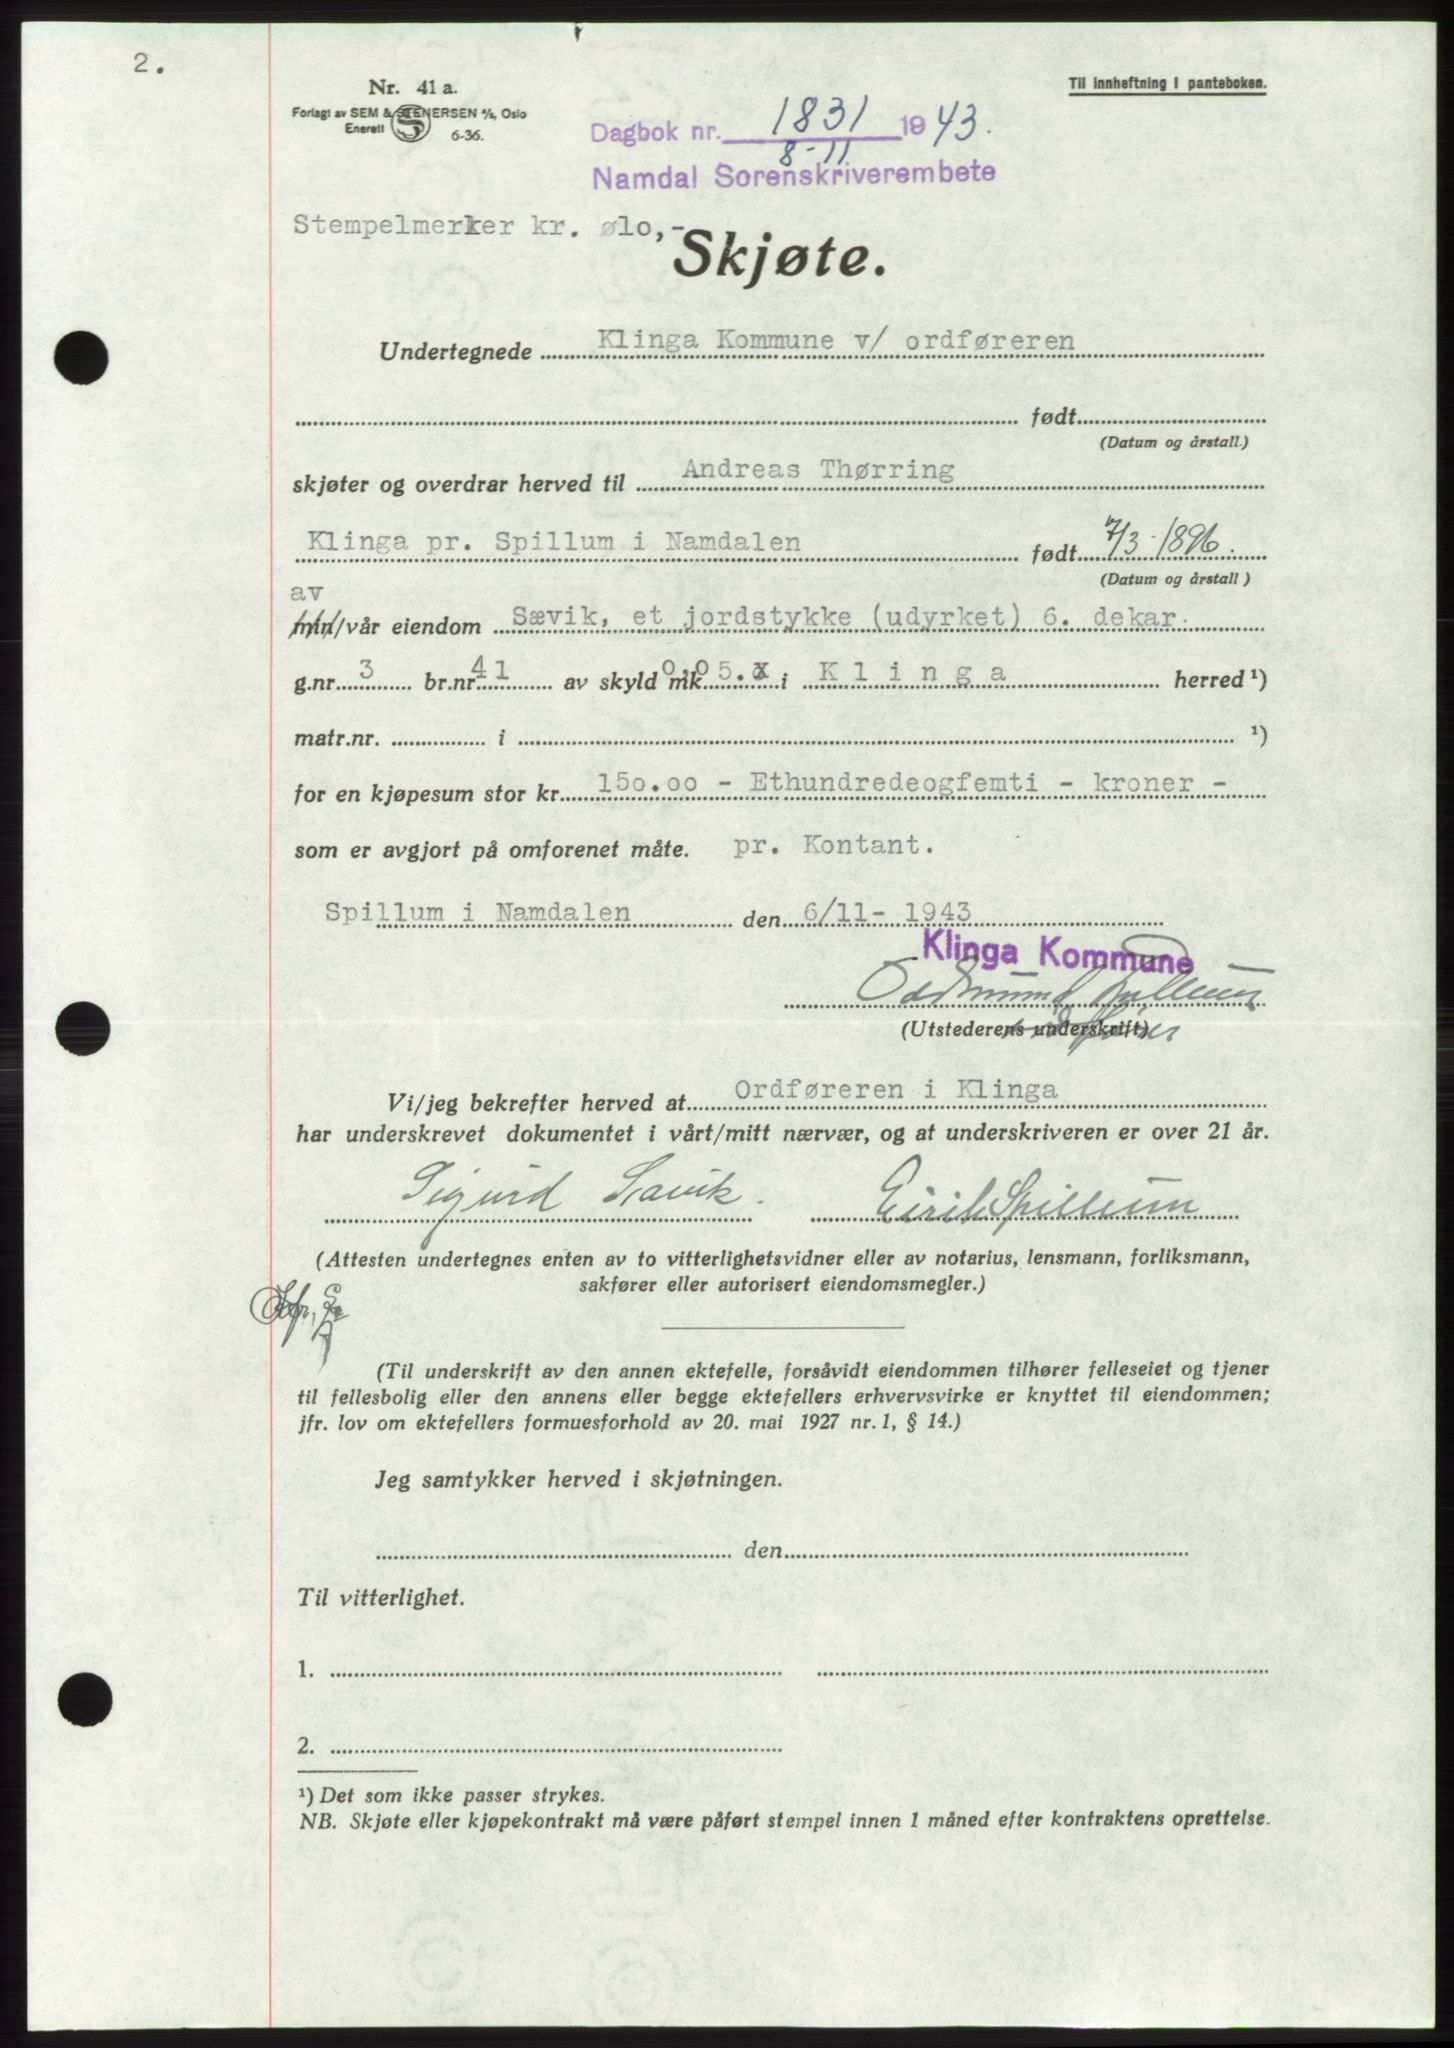 2.
Nr. 41 a.
Til innheftning i panteboken.
Forlagt av SEM & STENERSEN A/S, Oslo
Enerett 6-36.
Dagbok nr. 1831 1943.
8-11
Namdal Sorenskriverembete
Stempelmerker kr. ølo,-
Skjøte.
Undertegnede Klinga Kommune v/ ordføreren
født
(Datum og årstall.)
skjøter og overdrar herved til Andreas Thørring
Klinga pr. Spillum i Namdalen født 7/3-1896.
(Datum og årstall)
av
min/vår eiendom Sævik, et jordstykke (udyrket) 6. dekar.
g.nr. 3 br.nr. 41 av skyld mk. 0.05. i Klinga herred ¹)
matr.nr. i ¹)
for en kjøpesum stor kr. 150.00 - Ethundredeogfemti - kroner -
som er avgjort på omforenet måte. pr. Kontant.
Spillum i Namdalen den 6/11- 1943
Klinga Kommune
Oddmund
(Utstederens underskrift)
Vi/jeg bekrefter herved at Ordføreren i Klinga
har underskrevet dokumentet i vårt/mitt nærvær, og at underskriveren er over 21 år.
Sigurd Savik. Eirik Spillum
(Attesten undertegnes enten av to vitterlighetsvidner eller av notarius, lensmann, forliksmann,
sakfører eller autorisert eiendomsmegler.)
(Til underskrift av den annen ektefelle, forsåvidt eiendommen tilhører felleseiet og tjener
til fellesbolig eller den annens eller begge ektefellers erhvervsvirke er knyttet til eiendommen;
jfr. lov om ektefellers formuesforhold av 20. mai 1927 nr. 1, § 14.)
Jeg samtykker herved i skjøtningen.
den
Til vitterlighet.
1.
2.
¹) Det som ikke passer strykes.
NB. Skjøte eller kjøpekontrakt må være påført stempel innen 1 måned efter kontraktens oprettelse.